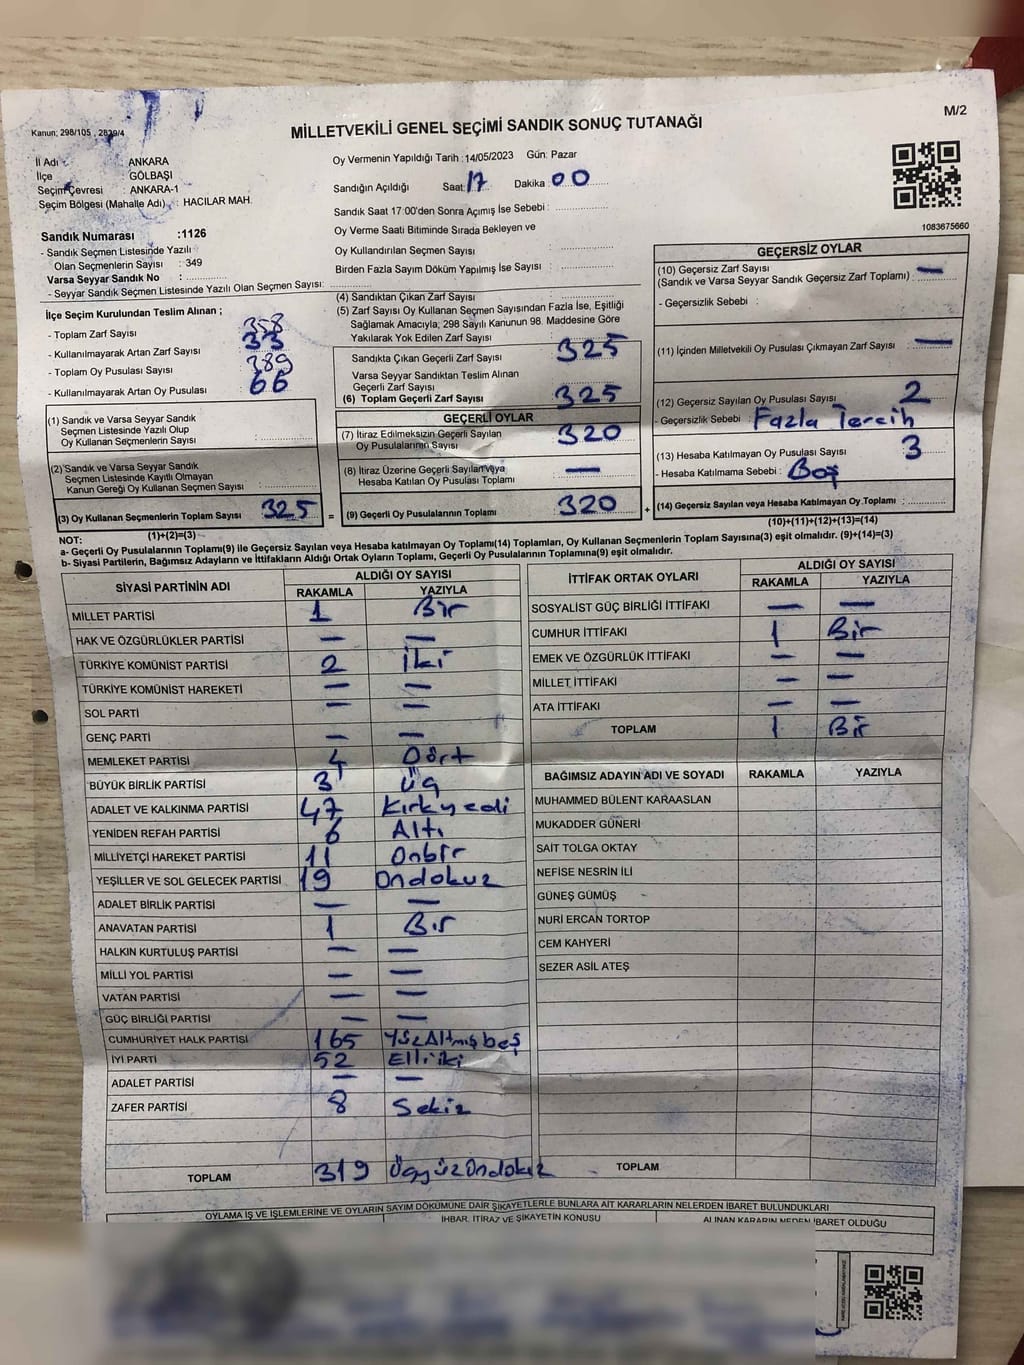 M/2
Kanun; 298/105 , 2839/4
MİLLETVEKİLİ GENEL SEÇİMİ SANDIK SONUÇ TUTANAĞI
İl Adı : ANKARA
İlçe : GÖLBAŞI
Seçim Çevresi : ANKARA-1
Seçim Bölgesi (Mahalle Adı) : HACILAR MAH.
Sandık Numarası :1126
- Sandık Seçmen Listesinde Yazılı
Olan Seçmenlerin Sayısı : 349
Varsa Seyyar Sandık No :
- Seyyar Sandık Seçmen Listesinde Yazılı Olan Seçmen Sayısı:
Oy Vermenin Yapıldığı Tarih :14/05/2023 Gün: Pazar
Sandığın Açıldığı Saat: 17 Dakika : 00
Sandık Saat 17:00'den Sonra Açmış İse Sebebi :
Oy Verme Saati Bitiminde Sırada Bekleyen ve
Oy Kullandırılan Seçmen Sayısı :
Birden Fazla Sayım Döküm Yapılmış İse Sayısı :
1083675660
İlçe Seçim Kurulundan Teslim Alınan ;
- Toplam Zarf Sayısı : 358
- Kullanılmayarak Artan Zarf Sayısı : 33
- Toplam Oy Pusulası Sayısı : 389
- Kullanılmayarak Artan Oy Pusulası : 66
(1) Sandık ve Varsa Seyyar Sandık
Seçmen Listesinde Yazılı Olup
Oy Kullanan Seçmenlerin Sayısı :
(2) Sandık ve Varsa Seyyar Sandık
Seçmen Listesinde Kayıtlı Olmayan
Kanun Gereği Oy Kullanan Seçmen Sayısı :
(3) Oy Kullanan Seçmenlerin Toplam Sayısı : 325 =
(1)+(2)=(3)
(4) Sandıktan Çıkan Zarf Sayısı :
(5) Zarf Sayısı Oy Kullanan Seçmen Sayısından Fazla İse, Eşitliği
Sağlamak Amacıyla; 298 Sayılı Kanunun 98. Maddesine Göre
Yakılarak Yok Edilen Zarf Sayısı :
Sandıkta Çıkan Geçerli Zarf Sayısı : 325
Varsa Seyyar Sandıktan Teslim Alınan
Geçerli Zarf Sayısı :
(6) Toplam Geçerli Zarf Sayısı : 325
GEÇERLİ OYLAR
(7) İtiraz Edilmeksizin Geçerli Sayılan
Oy Pusulalarının Sayısı : 320
(8) İtiraz Üzerine Geçerli Sayılan veya
Hesaba Katılan Oy Pusulası Toplamı : —
(9) Geçerli Oy Pusulalarının Toplamı : 320 +
GEÇERSİZ OYLAR
(10) Geçersiz Zarf Sayısı
(Sandık ve Varsa Seyyar Sandık Geçersiz Zarf Toplamı) : —
- Geçersizlik Sebebi :
(11) İçinden Milletvekili Oy Pusulası Çıkmayan Zarf Sayısı : —
(12) Geçersiz Sayılan Oy Pusulası Sayısı : 2
- Geçersizlik Sebebi : Fazla Tercih
(13) Hesaba Katılmayan Oy Pusulası Sayısı : 3
- Hesaba Katılmama Sebebi : Boş
(14) Geçersiz Sayılan veya Hesaba Katılmayan Oy Toplamı :
(10)+(11)+(12)+(13)=(14)
NOT:
a- Geçerli Oy Pusulalarının Toplamı(9) ile Geçersiz Sayılan veya Hesaba katılmayan Oy Toplamı(14) Toplamları, Oy Kullanan Seçmenlerin Toplam Sayısına(3) eşit olmalıdır. (9)+(14)=(3)
b- Siyasi Partilerin, Bağımsız Adayların ve İttifakların Aldığı Ortak Oyların Toplamı, Geçerli Oy Pusulalarının Toplamına(9) eşit olmalıdır.
SİYASİ PARTİNİN ADI ALDIĞI OY SAYISI
RAKAMLA YAZIYLA
MİLLET PARTİSİ 1 Bir
HAK VE ÖZGÜRLÜKLER PARTİSİ — —
TÜRKİYE KOMÜNİST PARTİSİ 2 İki
TÜRKİYE KOMÜNİST HAREKETİ — —
SOL PARTİ — —
GENÇ PARTİ — —
MEMLEKET PARTİSİ 4 Dört
BÜYÜK BİRLİK PARTİSİ 3 Üç
ADALET VE KALKINMA PARTİSİ 47 Kırkyedi
YENİDEN REFAH PARTİSİ 6 Altı
MİLLİYETÇİ HAREKET PARTİSİ 11 Onbir
YEŞİLLER VE SOL GELECEK PARTİSİ 19 Ondokuz
ADALET BİRLİK PARTİSİ — —
ANAVATAN PARTİSİ 1 Bir
HALKIN KURTULUŞ PARTİSİ — —
MİLLİ YOL PARTİSİ — —
VATAN PARTİSİ — —
GÜÇ BİRLİĞİ PARTİSİ — —
CUMHURİYET HALK PARTİSİ 165 YüzAltmışbeş
İYİ PARTİ 52 Elliiki
ADALET PARTİSİ — —
ZAFER PARTİSİ 8 Sekiz
TOPLAM 319 ÜçyüzOndokuz
İTTİFAK ORTAK OYLARI ALDIĞI OY SAYISI
RAKAMLA YAZIYLA
SOSYALİST GÜÇ BİRLİĞİ İTTİFAKI — —
CUMHUR İTTİFAKI 1 Bir
EMEK VE ÖZGÜRLÜK İTTİFAKI — —
MİLLET İTTİFAKI — —
ATA İTTİFAKI — —
TOPLAM 1 Bir
BAĞIMSIZ ADAYIN ADI VE SOYADI RAKAMLA YAZIYLA
MUHAMMED BÜLENT KARAASLAN
MUKADDER GÜNERİ
SAİT TOLGA OKTAY
NEFİSE NESRİN İLİ
GÜNEŞ GÜMÜŞ
NURİ ERCAN TORTOP
CEM KAHYERİ
SEZER ASİL ATEŞ
TOPLAM
OYLAMA İŞ VE İŞLEMLERİNE VE OYLARIN SAYIM DÖKÜMÜNE DAİR ŞİKAYETLERLE BUNLARA AİT KARARLARIN NELERDEN İBARET BULUNDUKLARI
İHBAR, İTİRAZ VE ŞİKAYETİN KONUSU ALINAN KARARIN NEDEN İBARET OLDUĞU